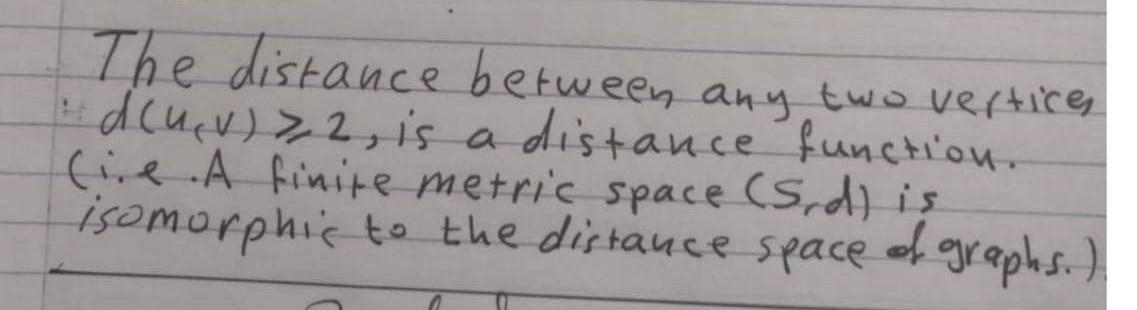 The distance between any two vertices
d(u,v) ≥ 2, is a distance function.
(i.e. A finite metric space (S,d) is
isomorphic to the distance space of graphs.)